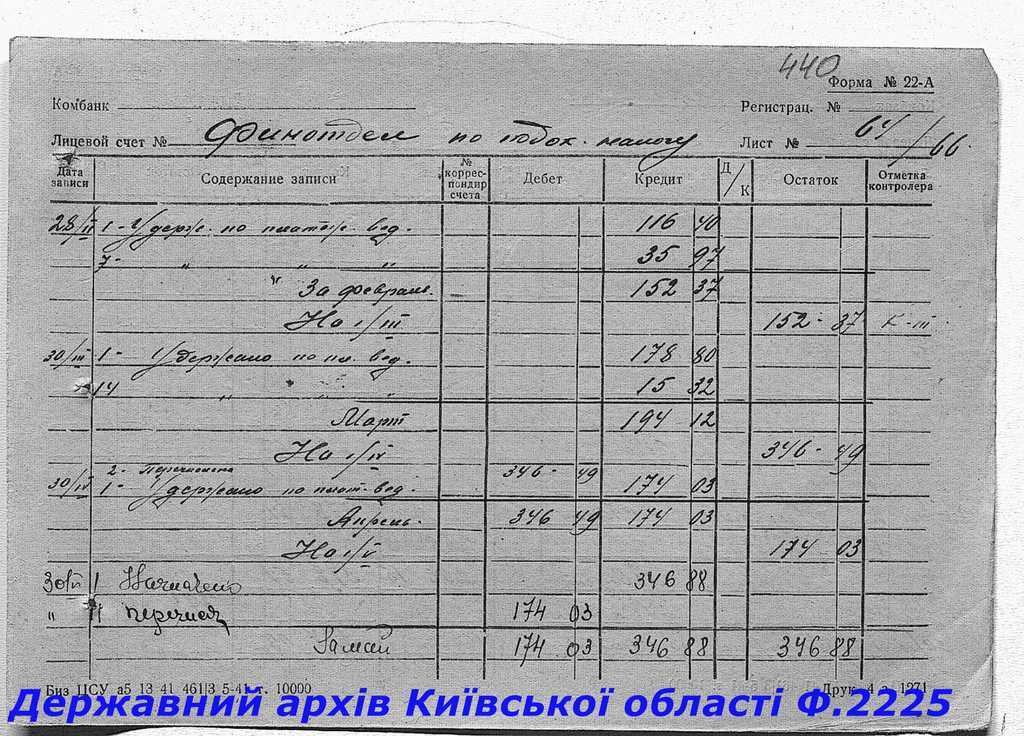 440
Форма № 22-А
Комбанк
Регистрац. №
Лицевой счет № Финотдел по подох. налогу Лист № 64/66.
Дата записи Содержание записи № коррес-пондир счета Дебет Кредит Д/К Остаток Отметка контролера
28/II 1 - Удерж. по платеж. вед. 116 40
7 - " " " 35 97
" За февраль. 152 37
На 1/III 152 - 37 К-III
30/III 1 - Удержано по пл. вед. 178 80
14 " " " 15 32
Март 194 12
На 1/IV 346 - 49
2 - Перечислено 346 - 49
30/IV 1 - Удержано по плат. вед. 174 03
Апрель. 346 49 174 03
На 1/V 174 03
30/VI 1 Начислено 346 88
" 11 перечисл 174 03
За май 174 03 346 88 346 88
Биз ЦСУ а5 13 41 461|3 5-41 т. 10000
Друк. 4 з. 1971
Державний архів Київської області Ф.2225